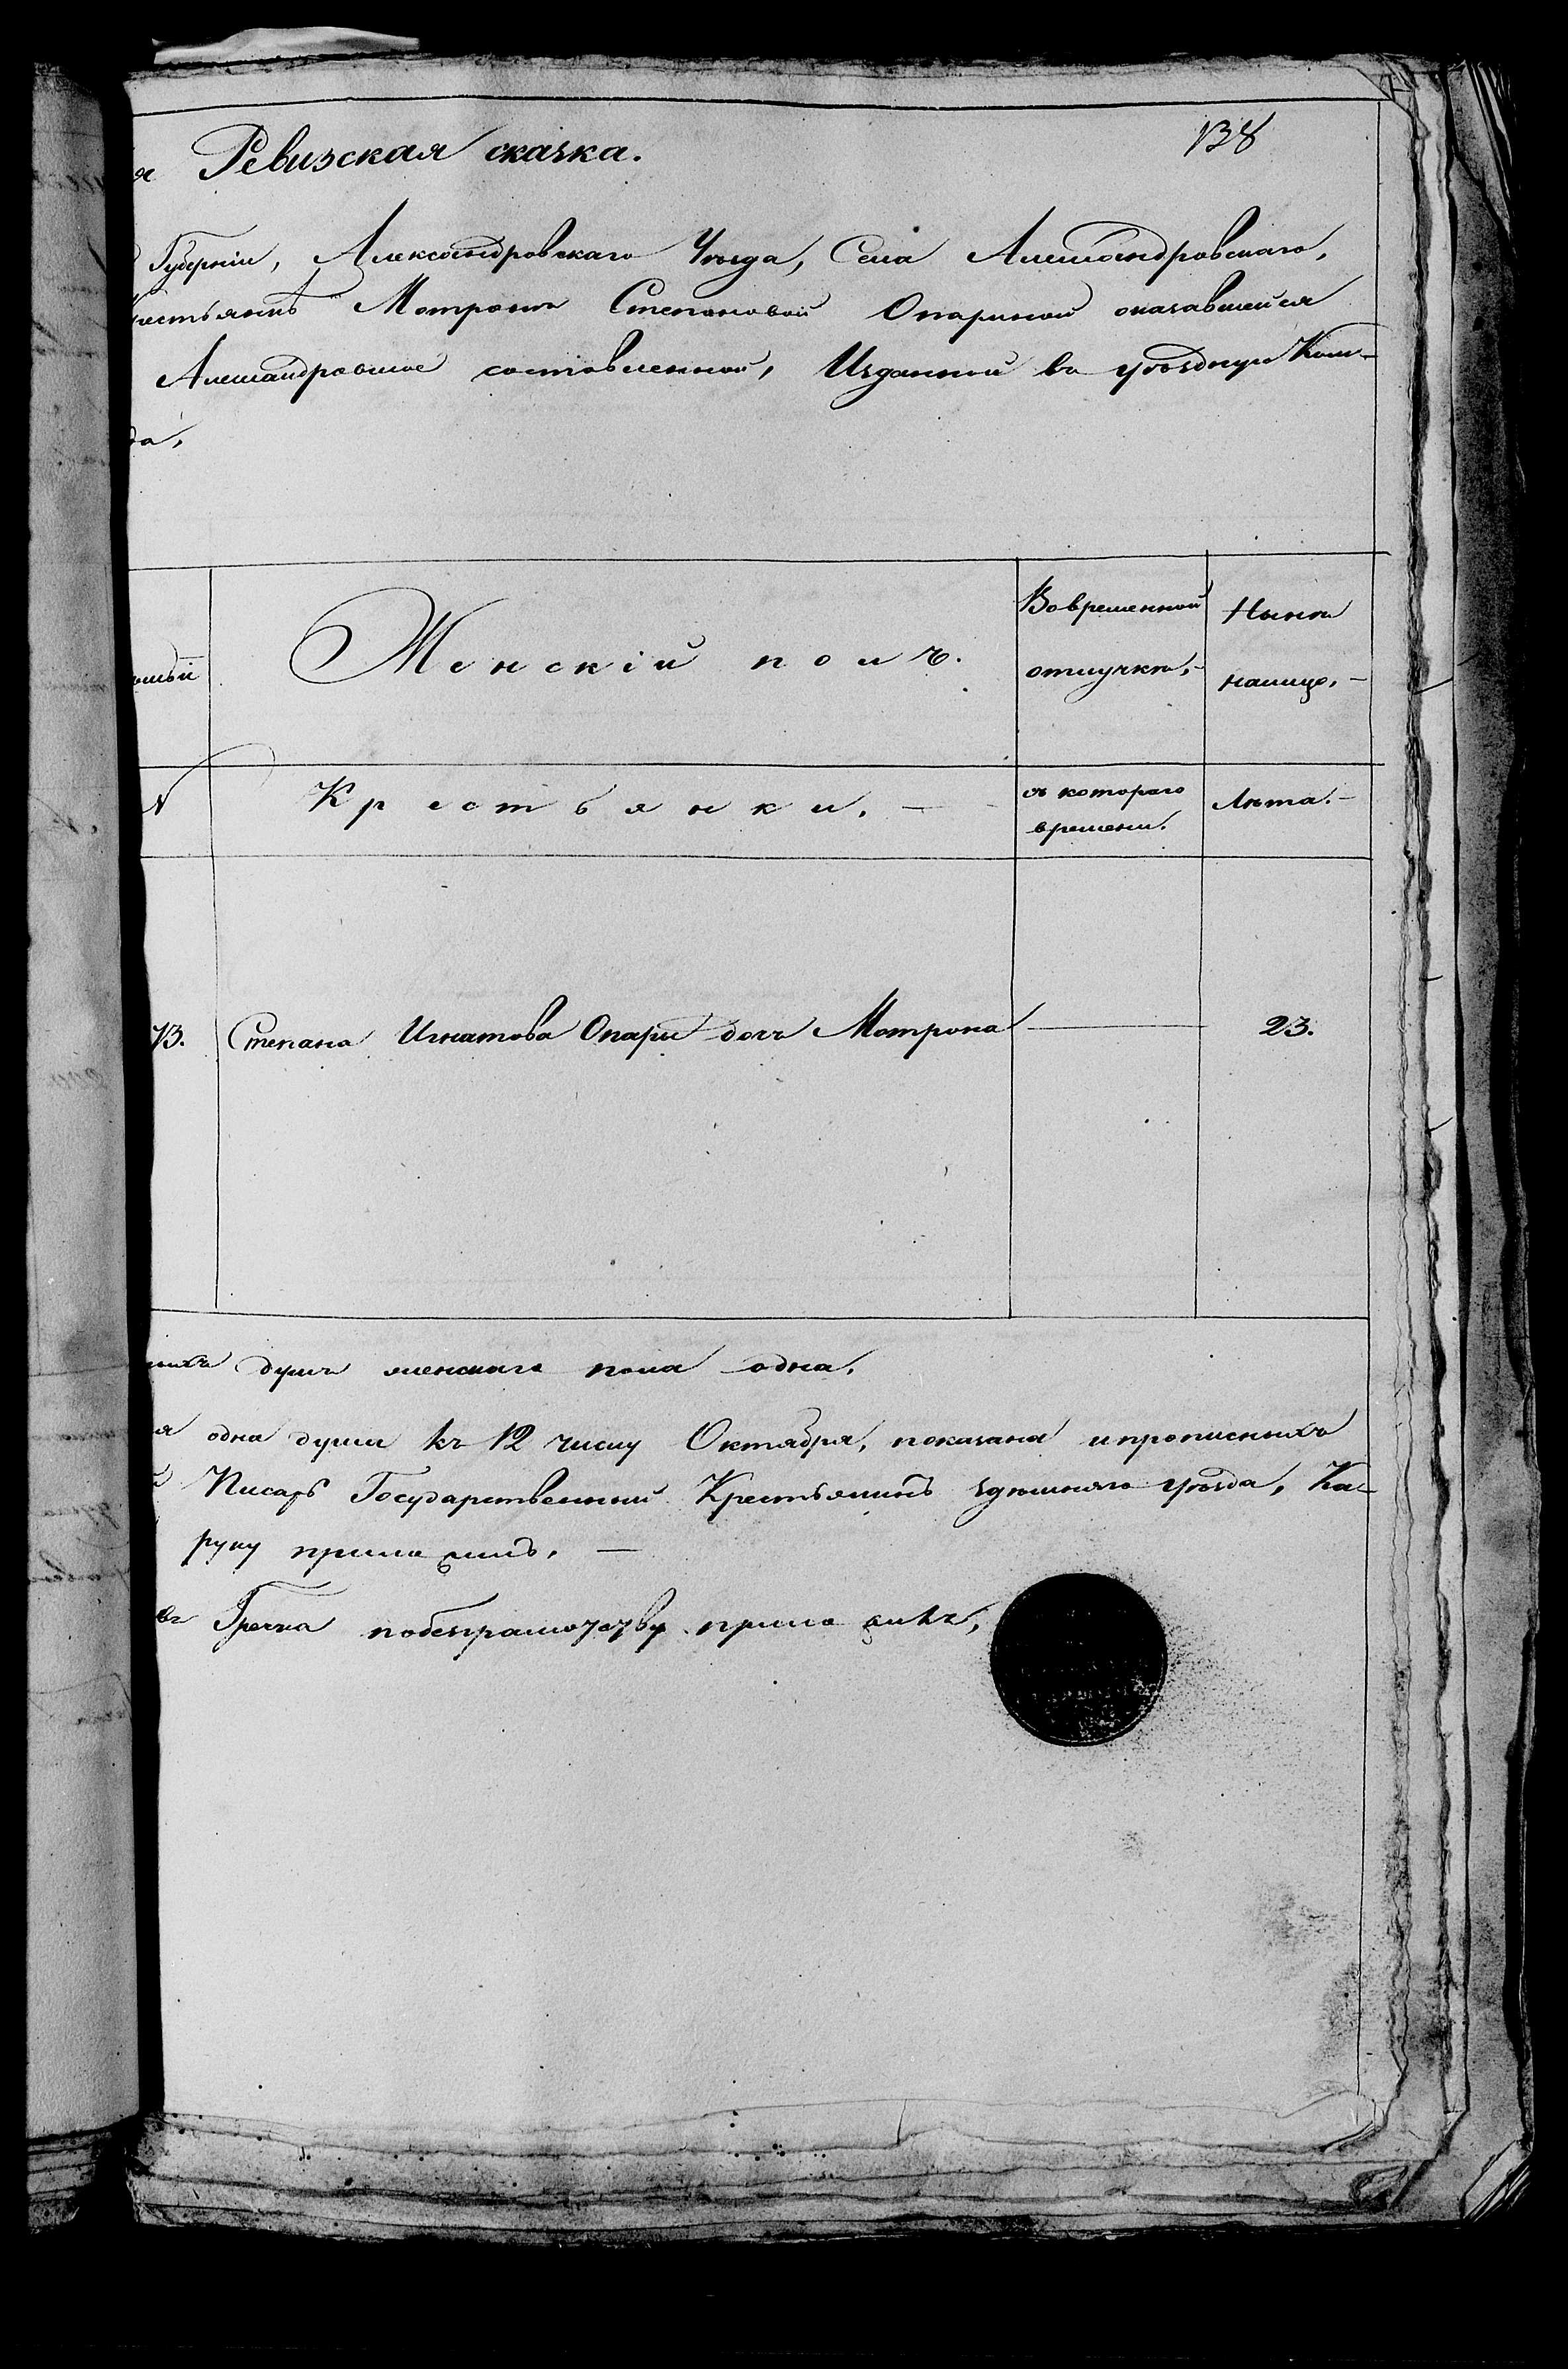 138
я Ревизская сказка.
Губернiи, Александровскаго Уѣзда, Села Александровскаго,
Матронѣ Степановой Опариной оказавшейся
Александровкое составленной, Изданной въ уѣздную Ком-
да,
Женскiй полъ.
Вовременной отлучкѣ,
Нынѣ налицо,
N
Крестьянки.
съ котораго времени.
Лѣта.
13. Степана Игнатова Опари дочъ Мотрона
23.
душъ женскаго пола одна.
я одна душа къ 12 числу Октября, показана ипрописныхъ
Писарь Государственный Крестьянинъ здѣшняго уѣзда, Ка-
руку приложилъ.
Гречка побезграмотству приложилъ,